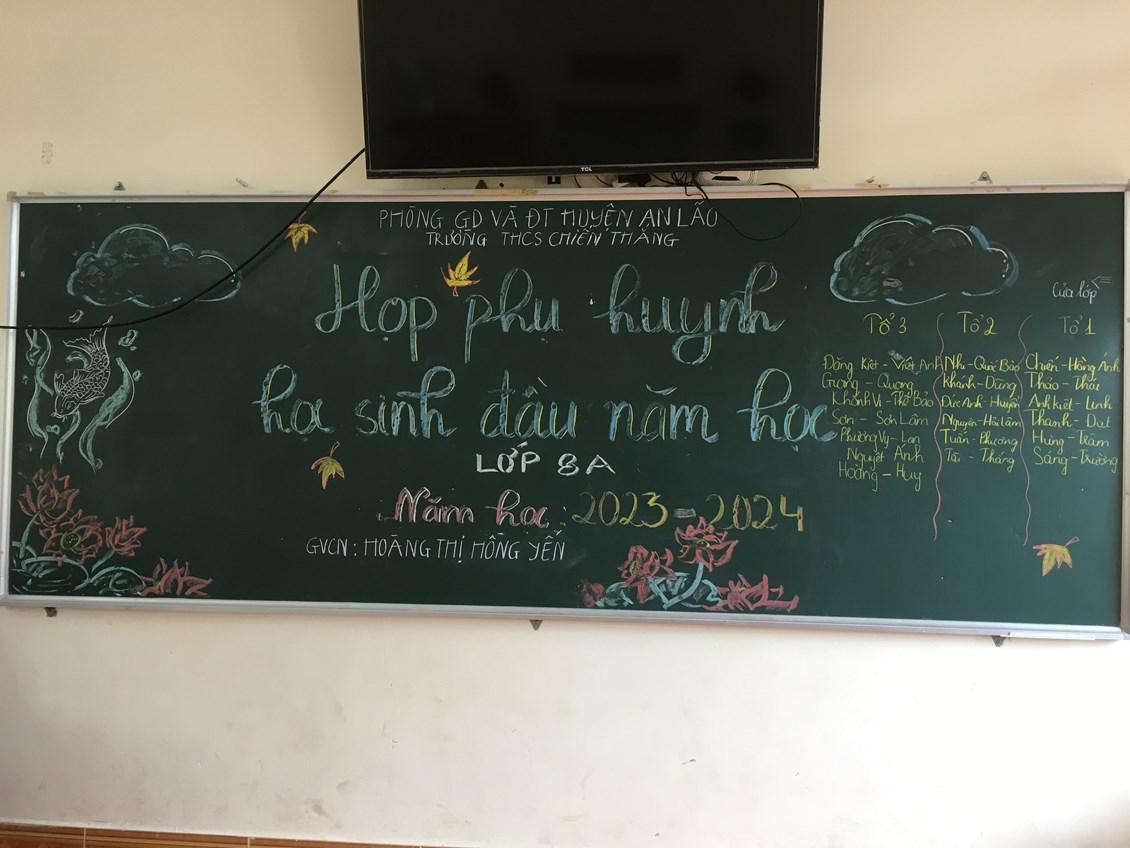 TCL
PHÒNG GD VÀ ĐT HUYỆN AN LÃO
TRƯỜNG THCS CHIẾN THẮNG
Họp phụ huynh
học sinh đầu năm học
LỚP 8A
Năm học: 2023-2024
GVCN: HOÀNG THỊ HỒNG YẾN
Cửa lớp
Tổ 3
Đặng Kiệt - Việt Anh
Quang
Khánh Vi - Thế Bảo
Sơn - Sơn Lâm
Phương Vy - Lan
Nguyệt Ánh
Hoàng - Huy
Tổ 2
Nhi - Quốc Bảo
Khánh - Dũng
Đức Anh - Huyền
Nguyên - Hải Lâm
Tuấn - Phương
Tài - Thắng
Tổ 1
Chiến - Hồng Ánh
Thảo - Thái
Anh Kiệt - Linh
Thanh - Đạt
Hưng - Trâm
Sáng - Trường